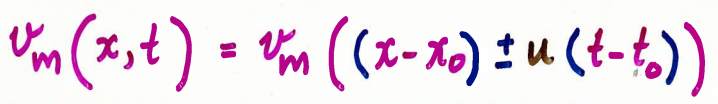 v_m(x,t) = v_m((x-x_0) ± u(t-t_0))